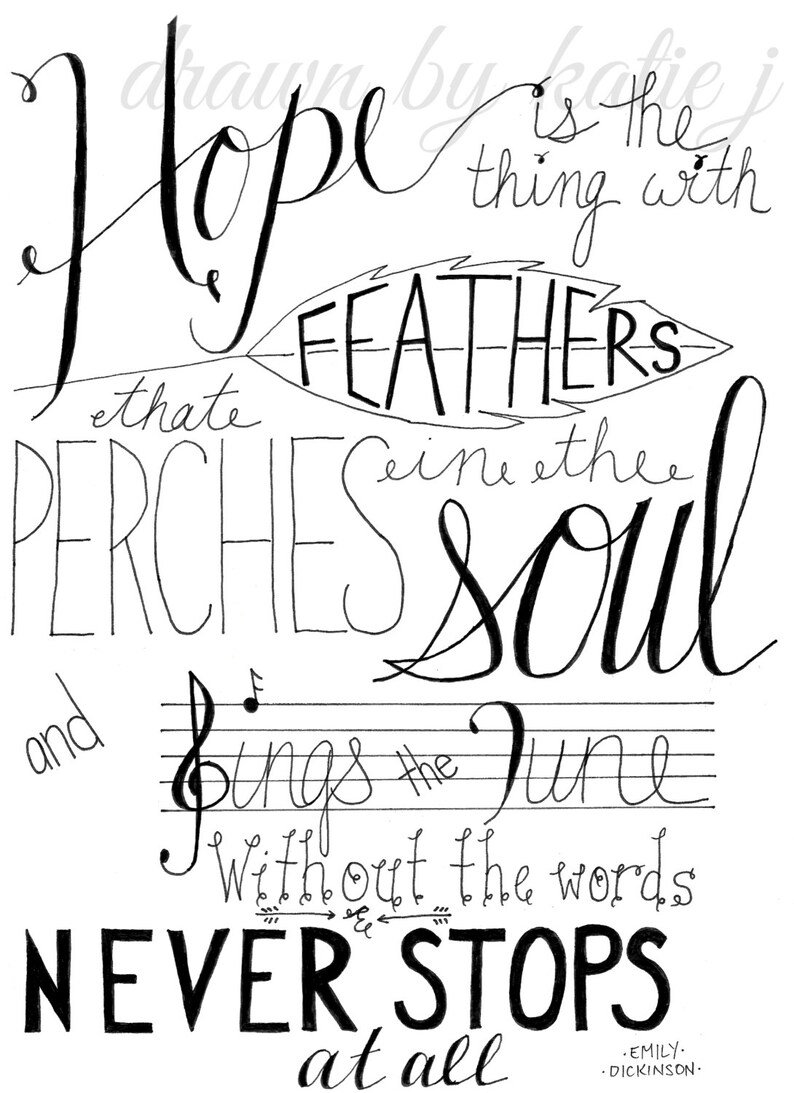 drawn by katie j
Hope is the
thing with
FEATHERS
that
PERCHES in the
soul
and sings the tune
Without the words
&
NEVER STOPS
at all
·EMILY·
·DICKINSON·